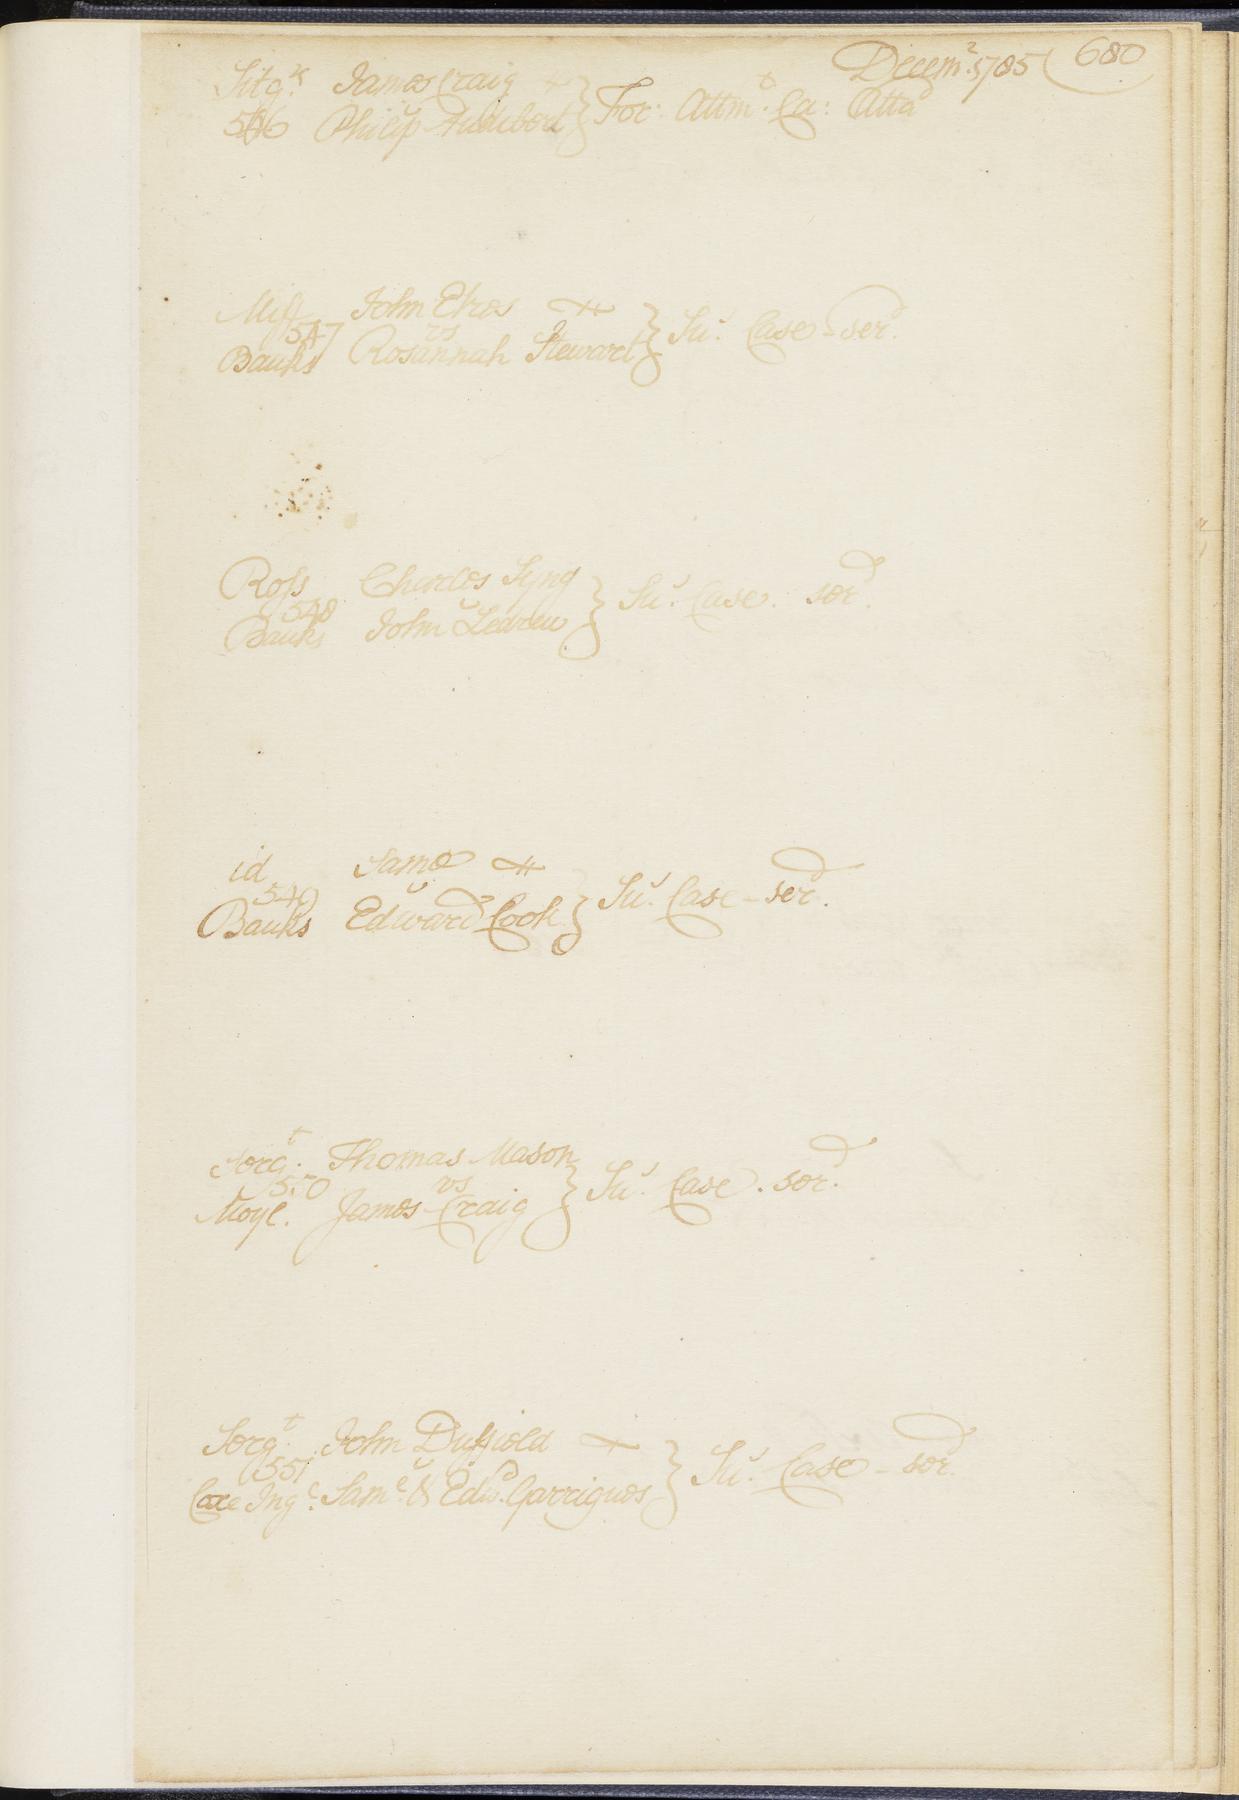 Decem.r 1785 (680)
Sitg.s James Craig
546 Philip Audibert } For: Attm.t Ca: Atta.d
Miff John Ekos
547 vs } Su.s Case - ser.d
Banks Rosannah Steward
Ross Charles Syng
548 } Su.s Case. ser.d
Banks John Ledrew
id Same
549 } Su.s Case - ser.d
Banks Edward Cook
Serg.t Thomas Mason
550 vs } Su.s Case. ser.d
Moyl. James Craig
Serg.t John Duffield
551 } Su.s Case - ser.d
Coxe Ing.l Sam.l & Edw.d Garrigues